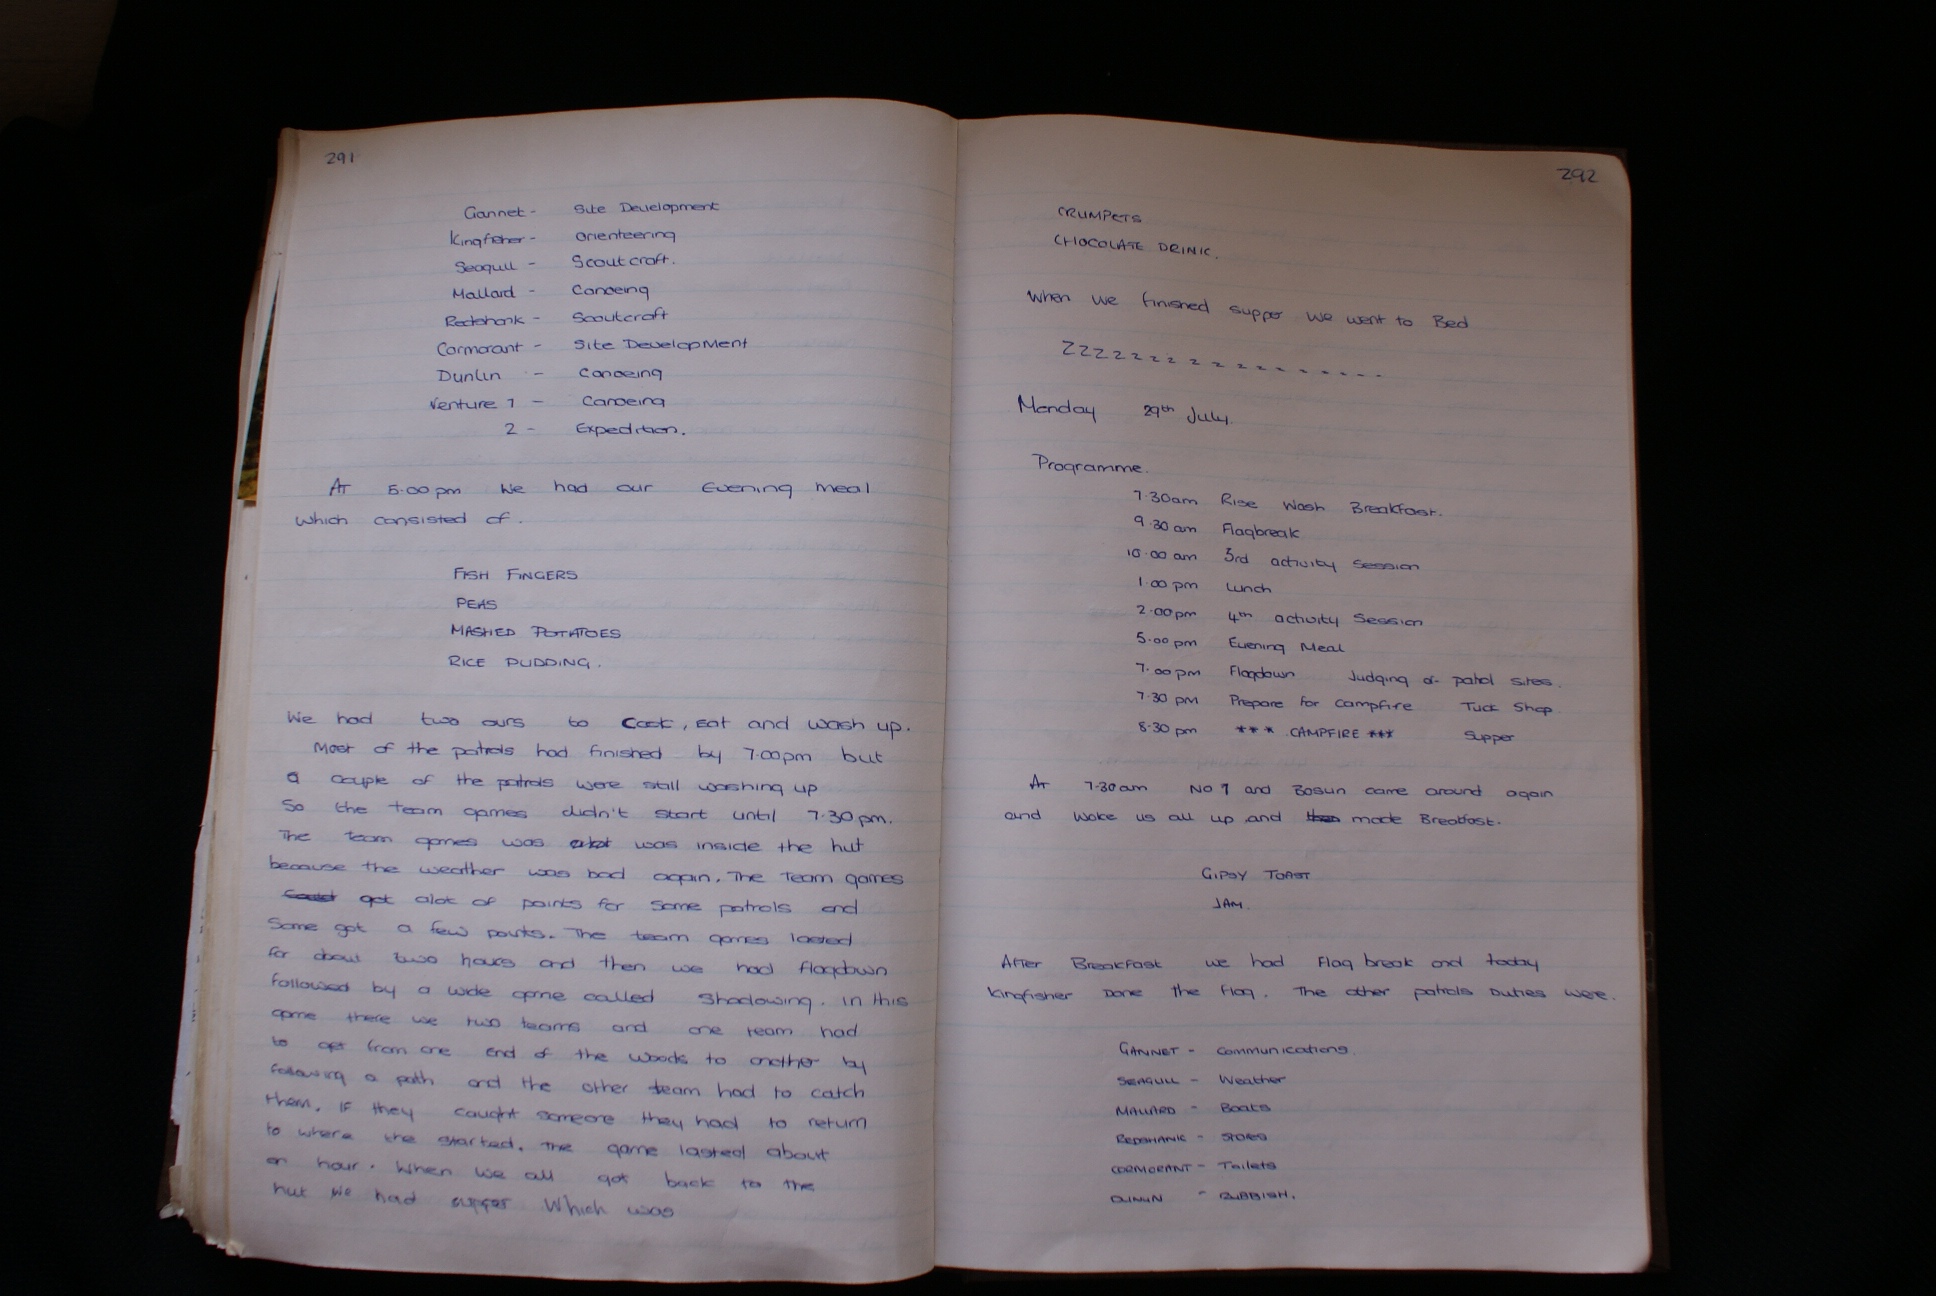 291
Gannet - Site Development
Kingfisher - Orienteering
Seagull - Scoutcraft.
Mallard - Canoeing
Redshank - Scoutcraft
Cormorant - Site Development
Dunlin - Canoeing
Venture 1 - Canoeing
2 - Expedition.
At 5.00pm We had our Evening meal
which consisted of.
FISH FINGERS
PEAS
MASHED POTATOES
RICE PUDDING.
We had two ours to Cook, Eat and wash up.
Most of the patrols had finished by 7.00pm but
a couple of the patrols were still washing up
So the team games didn't start until 7.30pm.
The team games was was inside the hut
because the weather was bad again. The Team games
got alot of points for some patrols and
Some got a few points. The team games lasted
for about two hours and then we had flagdown
followed by a wide game called Shadowing. in this
game there we two teams and one team had
to get from one end of the woods to another by
following a path and the other team had to catch
them. If they caught someone they had to return
to where the started. The game lasted about
an hour. When we all got back to the
hut we had supper Which was
292
CRUMPETS
CHOCOLATE DRINK.
When we finished supper we went to Bed
ZZZZZZZZZZZZZ.....
Monday 29th July.
Programme.
7.30am Rise Wash Breakfast.
9.30am Flagbreak
10.00am 3rd activity Session
1.00pm Lunch
2.00pm 4th activity Session
5.00pm Evening Meal
7.00pm Flagdown Judging of patrol sites.
7.30pm Prepare for campfire Tuck Shop
8.30pm *** CAMPFIRE *** Supper
At 7.30am No 1 and Bosun came around again
and woke us all up and made Breakfast.
GIPSY TOAST
JAM.
After Breakfast we had Flag break and today
kingfisher Done the flag. The other patrols Duties were.
GANNET - Communications.
SEAGULL - Weather
MALLARD - Boats
REDSHANK - STORES
CORMORANT - Toilets
DUNLIN - RUBBISH.